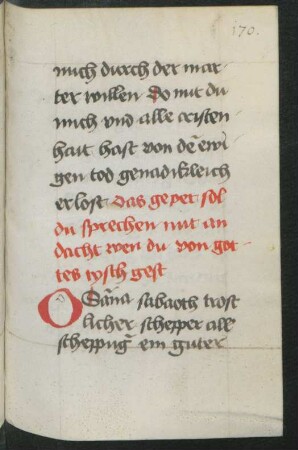 170.
mich durch der mar
ter willen Do mit du
mich vnd alle cristen
hait hast von dē ewi
gen tod genadikleich
erlost Das gepet sol
du sprechen mit an
dacht wen du von got
tes tysch gest
O Sāna sabaoth trost
licher schepper aller
scheppūg ein guter